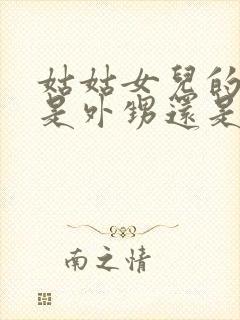 姑姑女兒的
是外甥還是
南之情